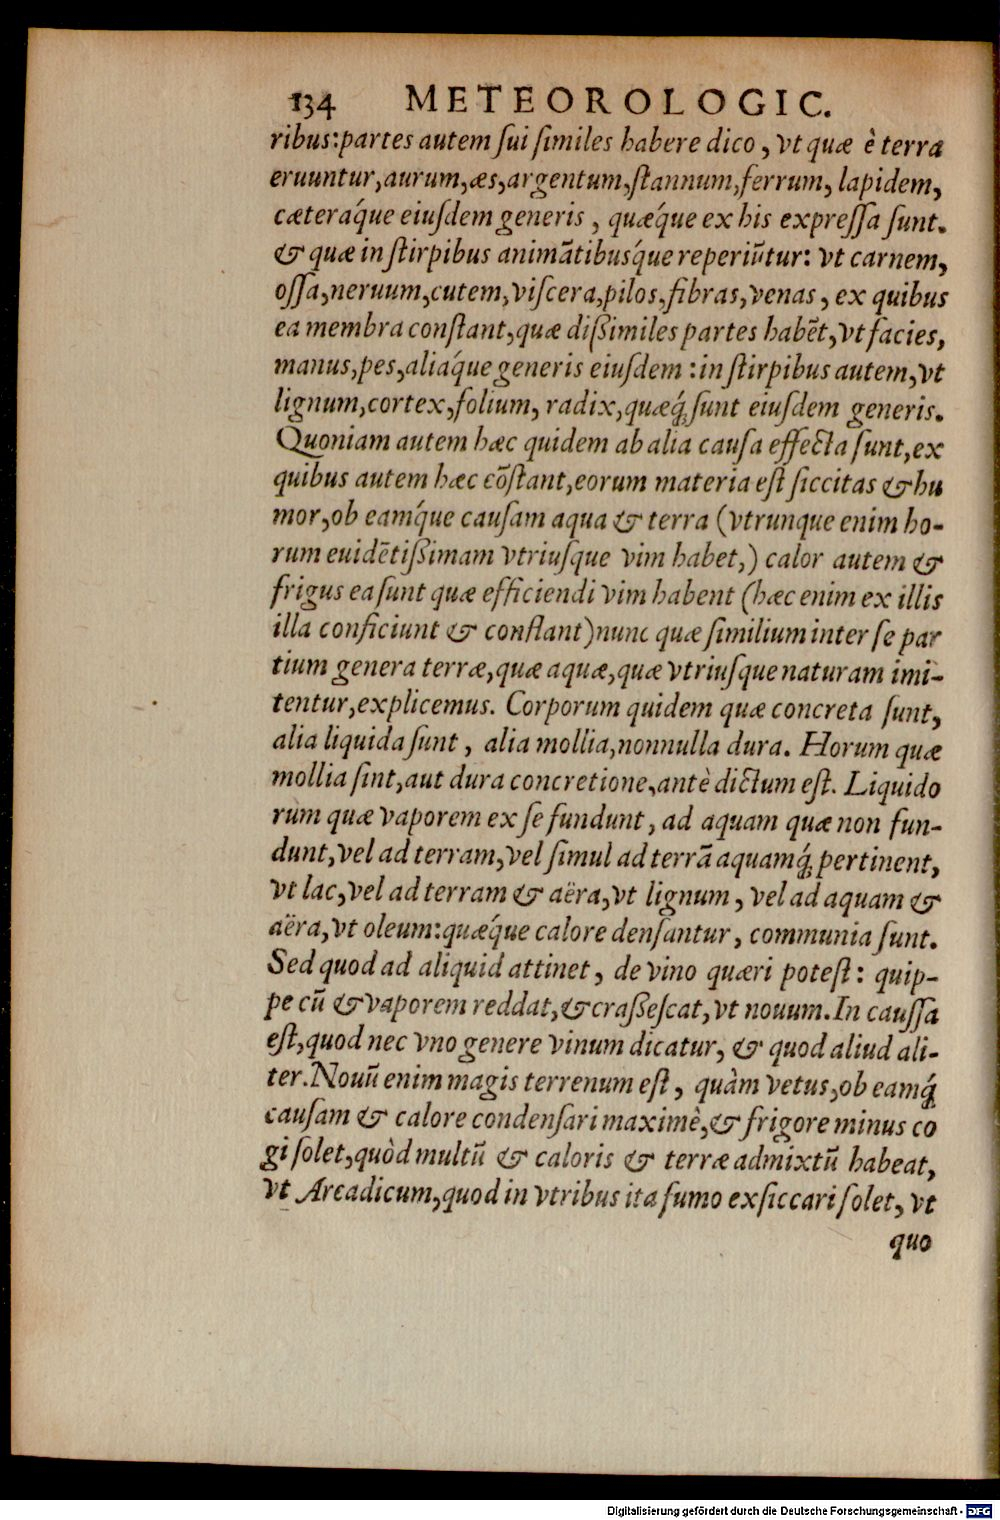 134 METEOROLOGIC.
ribus:partes autem ſui ſimiles habere dico, vt quæ è terra
eruuntur,aurum,æs,argentum,ſtannum,ferrum, lapidem,
cæteráque eiuſdem generis, quæque ex his expreſſa ſunt.
& quæ in ſtirpibus animãtibusq́ue reperiũtur: vt carnem,
oſſa,neruum,cutem,viſcera,pilos,fibras,venas, ex quibus
ea membra conſtant,quæ dißimiles partes habẽt,vt facies,
manus,pes,aliáque generis eiuſdem:in ſtirpibus autem,vt
lignum,cortex,folium, radix,quæq́; ſunt eiuſdem generis.
Quoniam autem hæc quidem ab alia cauſa effecta ſunt,ex
quibus autem hæc cõſtant,eorum materia eſt ſiccitas & hu
mor,ob eamq́ue cauſam aqua & terra (vtrunque enim ho-
rum euidẽtißimam vtriuſque vim habet,) calor autem &
frigus ea ſunt quæ efficiendi vim habent (hæc enim ex illis
illa conficiunt & conſtant) nunc quæ ſimilium inter ſe par
tium genera terræ,quæ aquæ,quæ vtriuſque naturam imi-
tentur,explicemus. Corporum quidem quæ concreta ſunt,
alia liquida ſunt, alia mollia,nonnulla dura. Horum quæ
mollia ſint,aut dura concretione,antè dictum eſt. Liquido
rum quæ vaporem ex ſe fundunt, ad aquam quæ non fun-
dunt,vel ad terram,vel ſimul ad terrã aquamq́; pertinent,
vt lac,vel ad terram & aëra,vt lignum, vel ad aquam &
aëra,vt oleum:quæque calore denſantur, communia ſunt.
Sed quod ad aliquid attinet, de vino quæri poteſt: quip-
pe cũ & vaporem reddat,& craßeſcat,vt nouum. In cauſſa
eſt,quod nec vno genere vinum dicatur, & quod aliud ali-
ter. Nouũ enim magis terrenum eſt, quàm vetus,ob eamq́;
cauſam & calore condenſari maximè,& frigore minus co
gi ſolet,quòd multũ & caloris & terræ admixtũ habeat,
vt Arcadicum,quod in vtribus ita fumo exſiccari ſolet, vt
quo
Digitalisierung gefördert durch die Deutsche Forschungsgemeinschaft - DFG